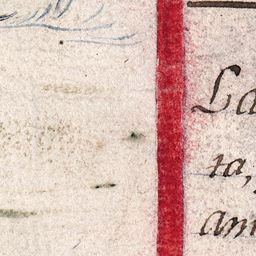 La
ta,
am